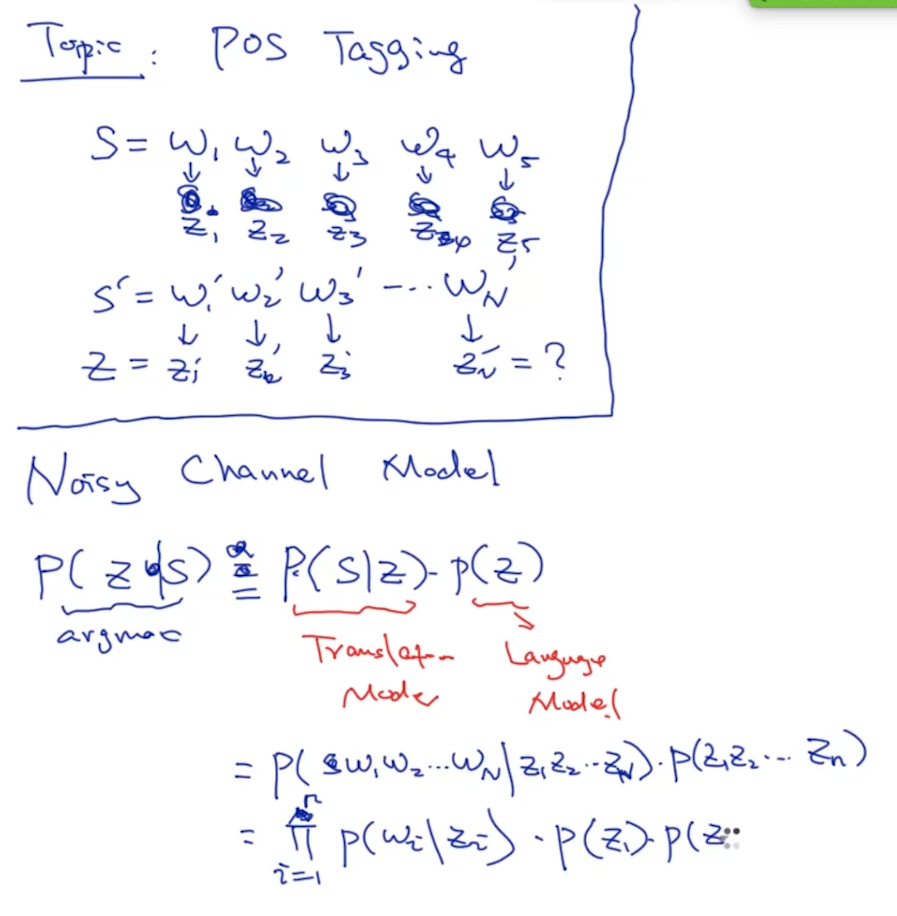 Topic: POS Tagging
S = w₁ w₂ w₃ w₄ w₅
↓ ↓ ↓ ↓ ↓
z₁ z₂ z₃ z₄ z₅
S' = w₁' w₂' w₃' --- w_N'
↓ ↓ ↓ ↓
Z = z₁' z₂' z₃' z_N' = ?
Noisy Channel Model
P(Z|S) = P(S|Z) · p(Z)
argmax
Translation Model
Language Model
= P(w₁w₂...w_N|z₁z₂...z_N) · p(z₁z₂...z_n)
= ∏ᵢ₌₁ⁿ p(wᵢ|zᵢ) · p(z₁) · p(z